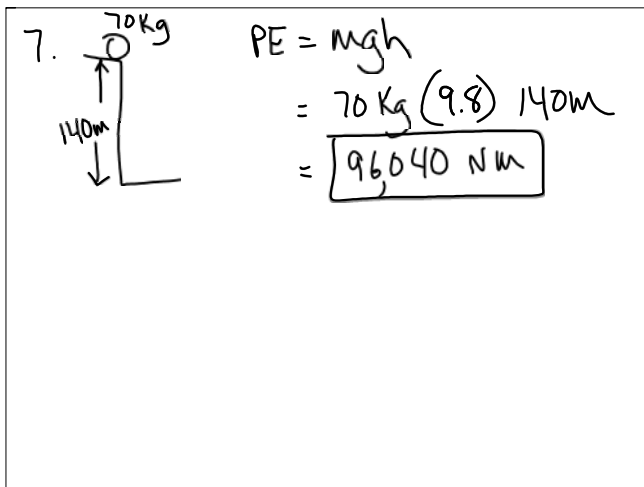 7.
70Kg
140m
PE = mgh
= 70 Kg (9.8) 140m
= 96,040 Nm